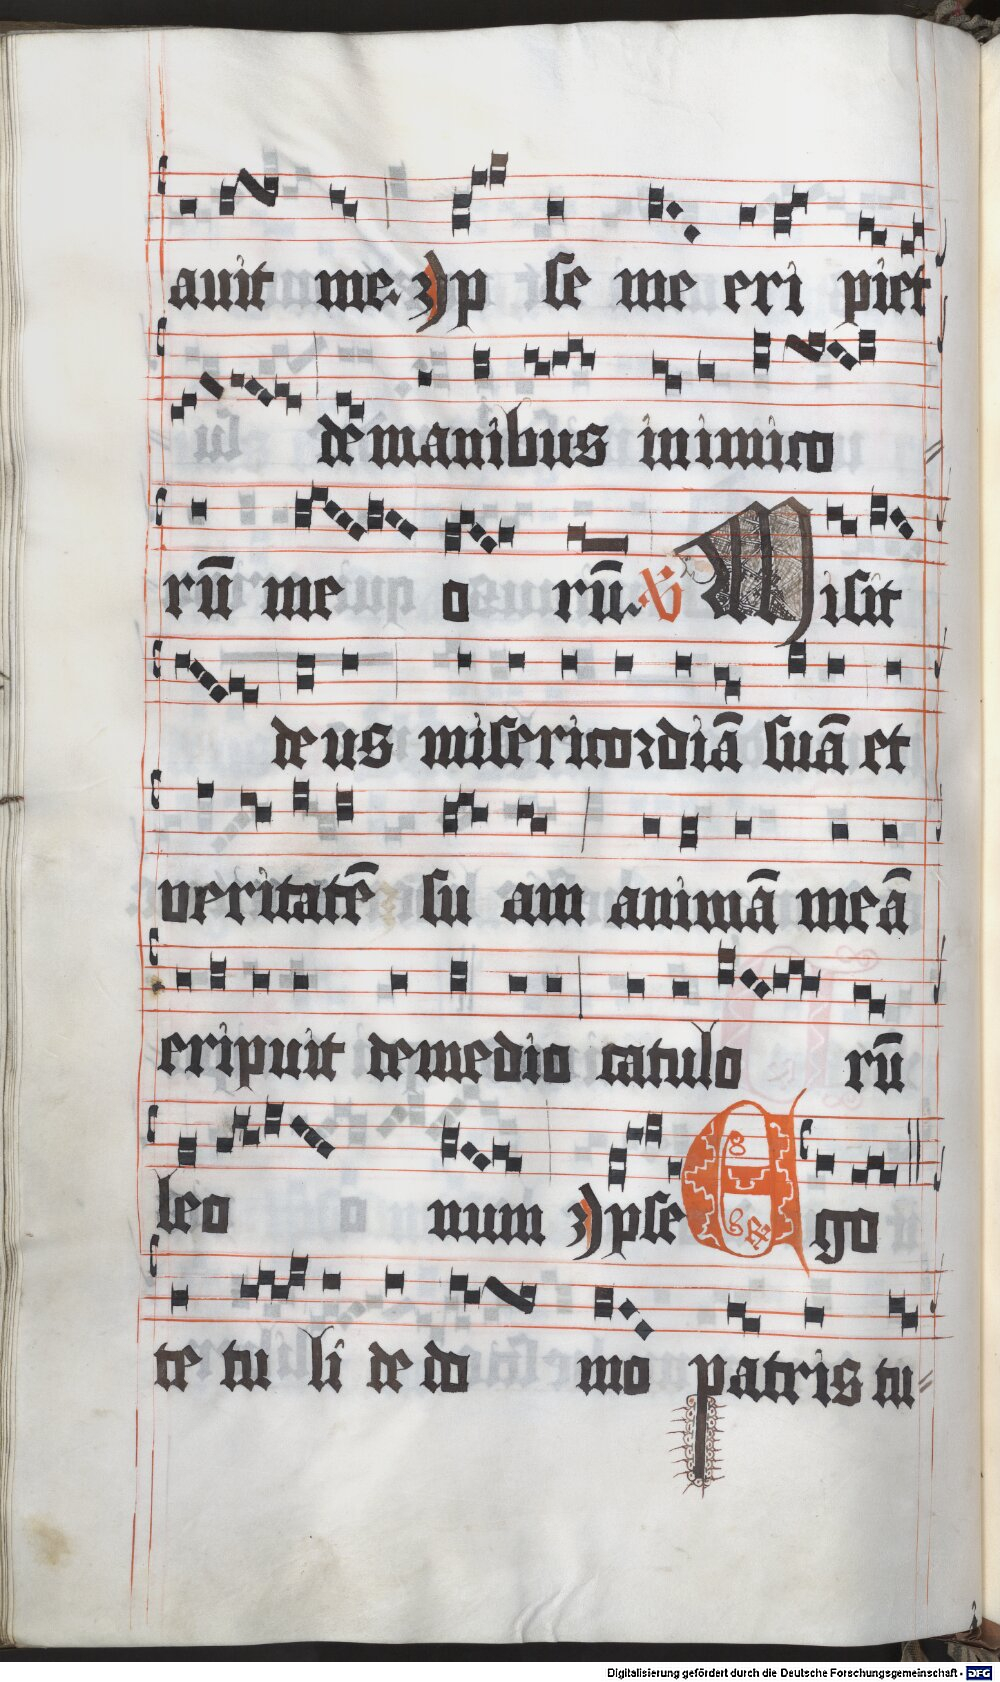 auit me. Jp se me eri piet
de manibus inimico
rū me o rū. ℣ Misit
deus misericordiā suā et
veritatē su am animā meā
eripuit de medio catulo rū
leo num Jpse Ego
te tu li de do mo patris tu
Digitalisierung gefördert durch die Deutsche Forschungsgemeinschaft - DFG